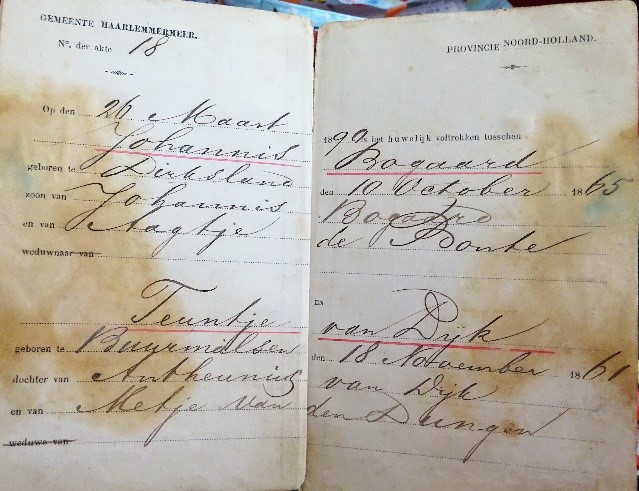 GEMEENTE HAARLEMMERMEER.
Nº. der akte 18
PROVINCIE NOORD-HOLLAND.
Op den 26 Maart 1890 is het huwelijk voltrokken tusschen
Johannis Bogaard
geboren te Dirksland den 10 October 1865
zoon van Johannis Bogaard
en van Aagtje de Bonte
weduwnaar van
EN
Teuntje van Dijk
geboren te Buurmalsen den 18 November 1861
dochter van Antheunis van Dijk
en van Metje van den Dungen
weduwe van